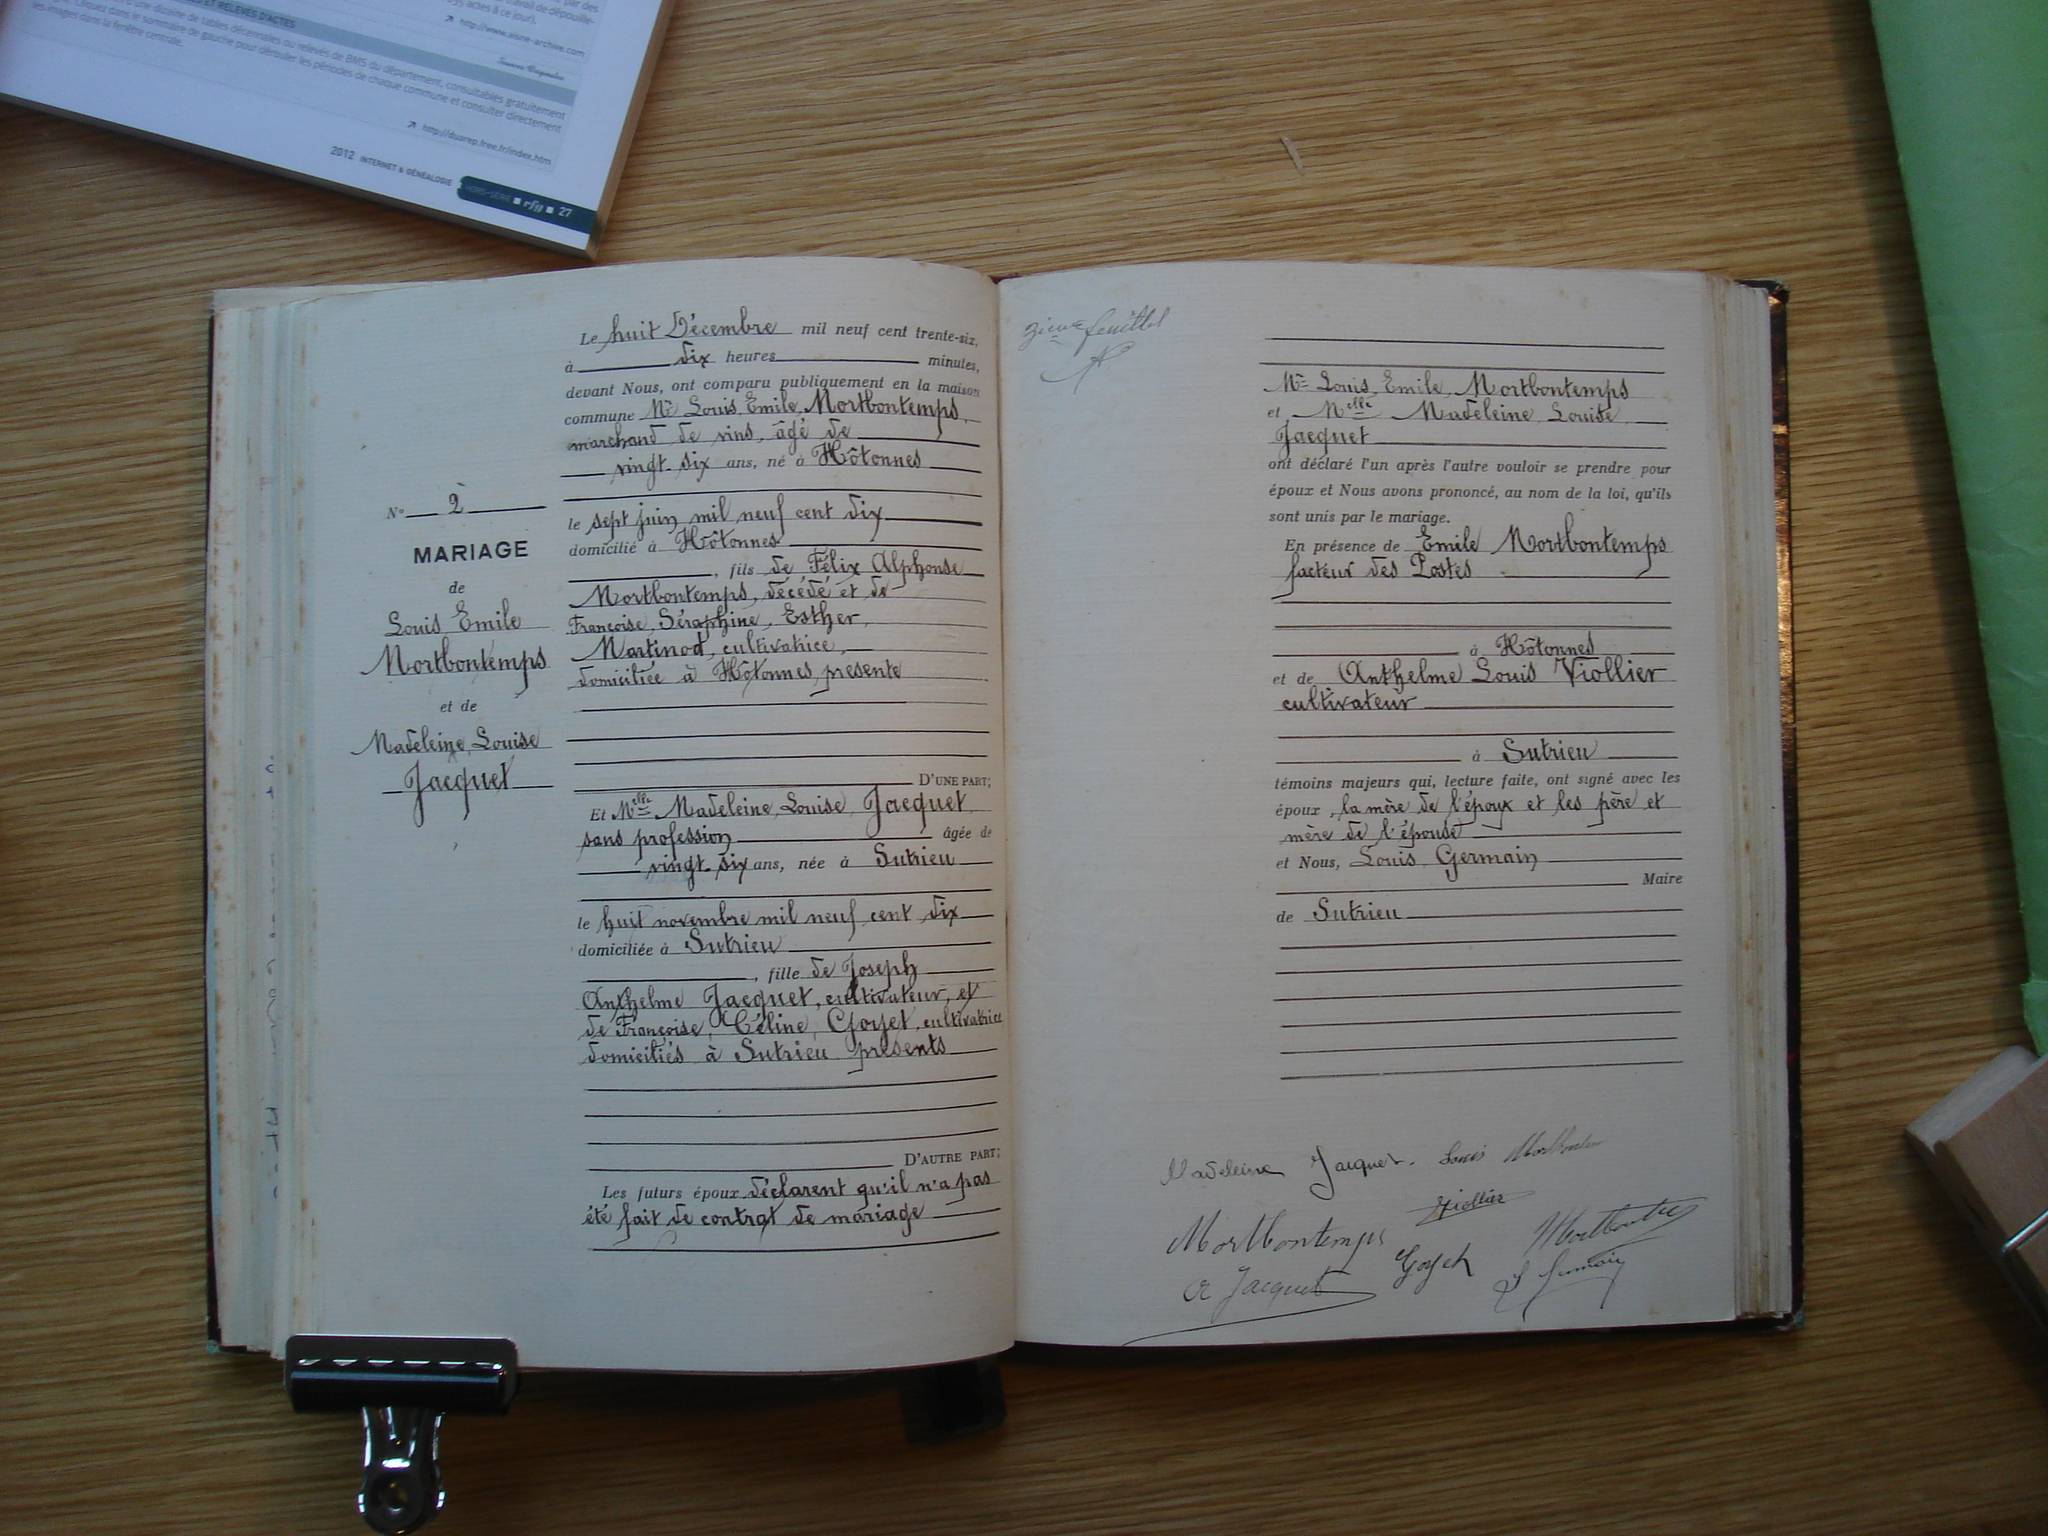 ET RELEVÉS D'ACTES
une dizaine de tables décennales ou relevés de BMS du département, consultables gratuitement
Cliquez dans le sommaire de gauche pour dérouler les périodes de chaque commune et consulter directement
les images dans la fenêtre centrale.
actes à ce jour).
http://www.aisne-archive.com
http://duarep.free.fr/index.htm
2012 INTERNET & GÉNÉALOGIE
HORS-SÉRIE rfg 27
N° 2
MARIAGE
de
Louis Emile
Mortbontemps
et de
Madeleine Louise
Jacquet
Le huit Décembre mil neuf cent trente-six,
à dix heures minutes,
devant Nous, ont comparu publiquement en la maison
commune Mr Louis Emile Mortbontemps,
marchand de vins, âgé de
vingt six ans, né à Hôtonnes
le sept juin mil neuf cent dix
domicilié à Hôtonnes
, fils de Félix Alphonse
Mortbontemps, décédé et de
Françoise, Séraphine, Esther,
Martinod, cultivatrice,
domiciliée à Hôtonnes, présente
D'UNE PART;
Et Melle Madeleine Louise Jacquet
sans profession âgée de
vingt six ans, née à Sutrieu
le huit novembre mil neuf cent dix
domiciliée à Sutrieu
, fille de Joseph
Anthelme Jacquet, cultivateur, et
de Françoise, Céline, Goyet, cultivatrice
domiciliés à Sutrieu présents
D'AUTRE PART;
Les futurs époux déclarent qu'il n'a pas
été fait de contrat de mariage
feuillet
Mr Louis, Emile, Mortbontemps
et Melle Madeleine Louise
Jacquet
ont déclaré l'un après l'autre vouloir se prendre pour
époux et Nous avons prononcé, au nom de la loi, qu'ils
sont unis par le mariage.
En présence de Emile Mortbontemps
facteur des Postes
à Hôtonnes
et de Anthelme Louis Viollier
cultivateur
à Sutrieu
témoins majeurs qui, lecture faite, ont signé avec les
époux, la mère de l'époux et les père et
mère de l'épouse
et Nous, Louis Germain
Maire
de Sutrieu
Madeleine Jacquet. Louis
Viollier
Mortbontemps
Jacquet